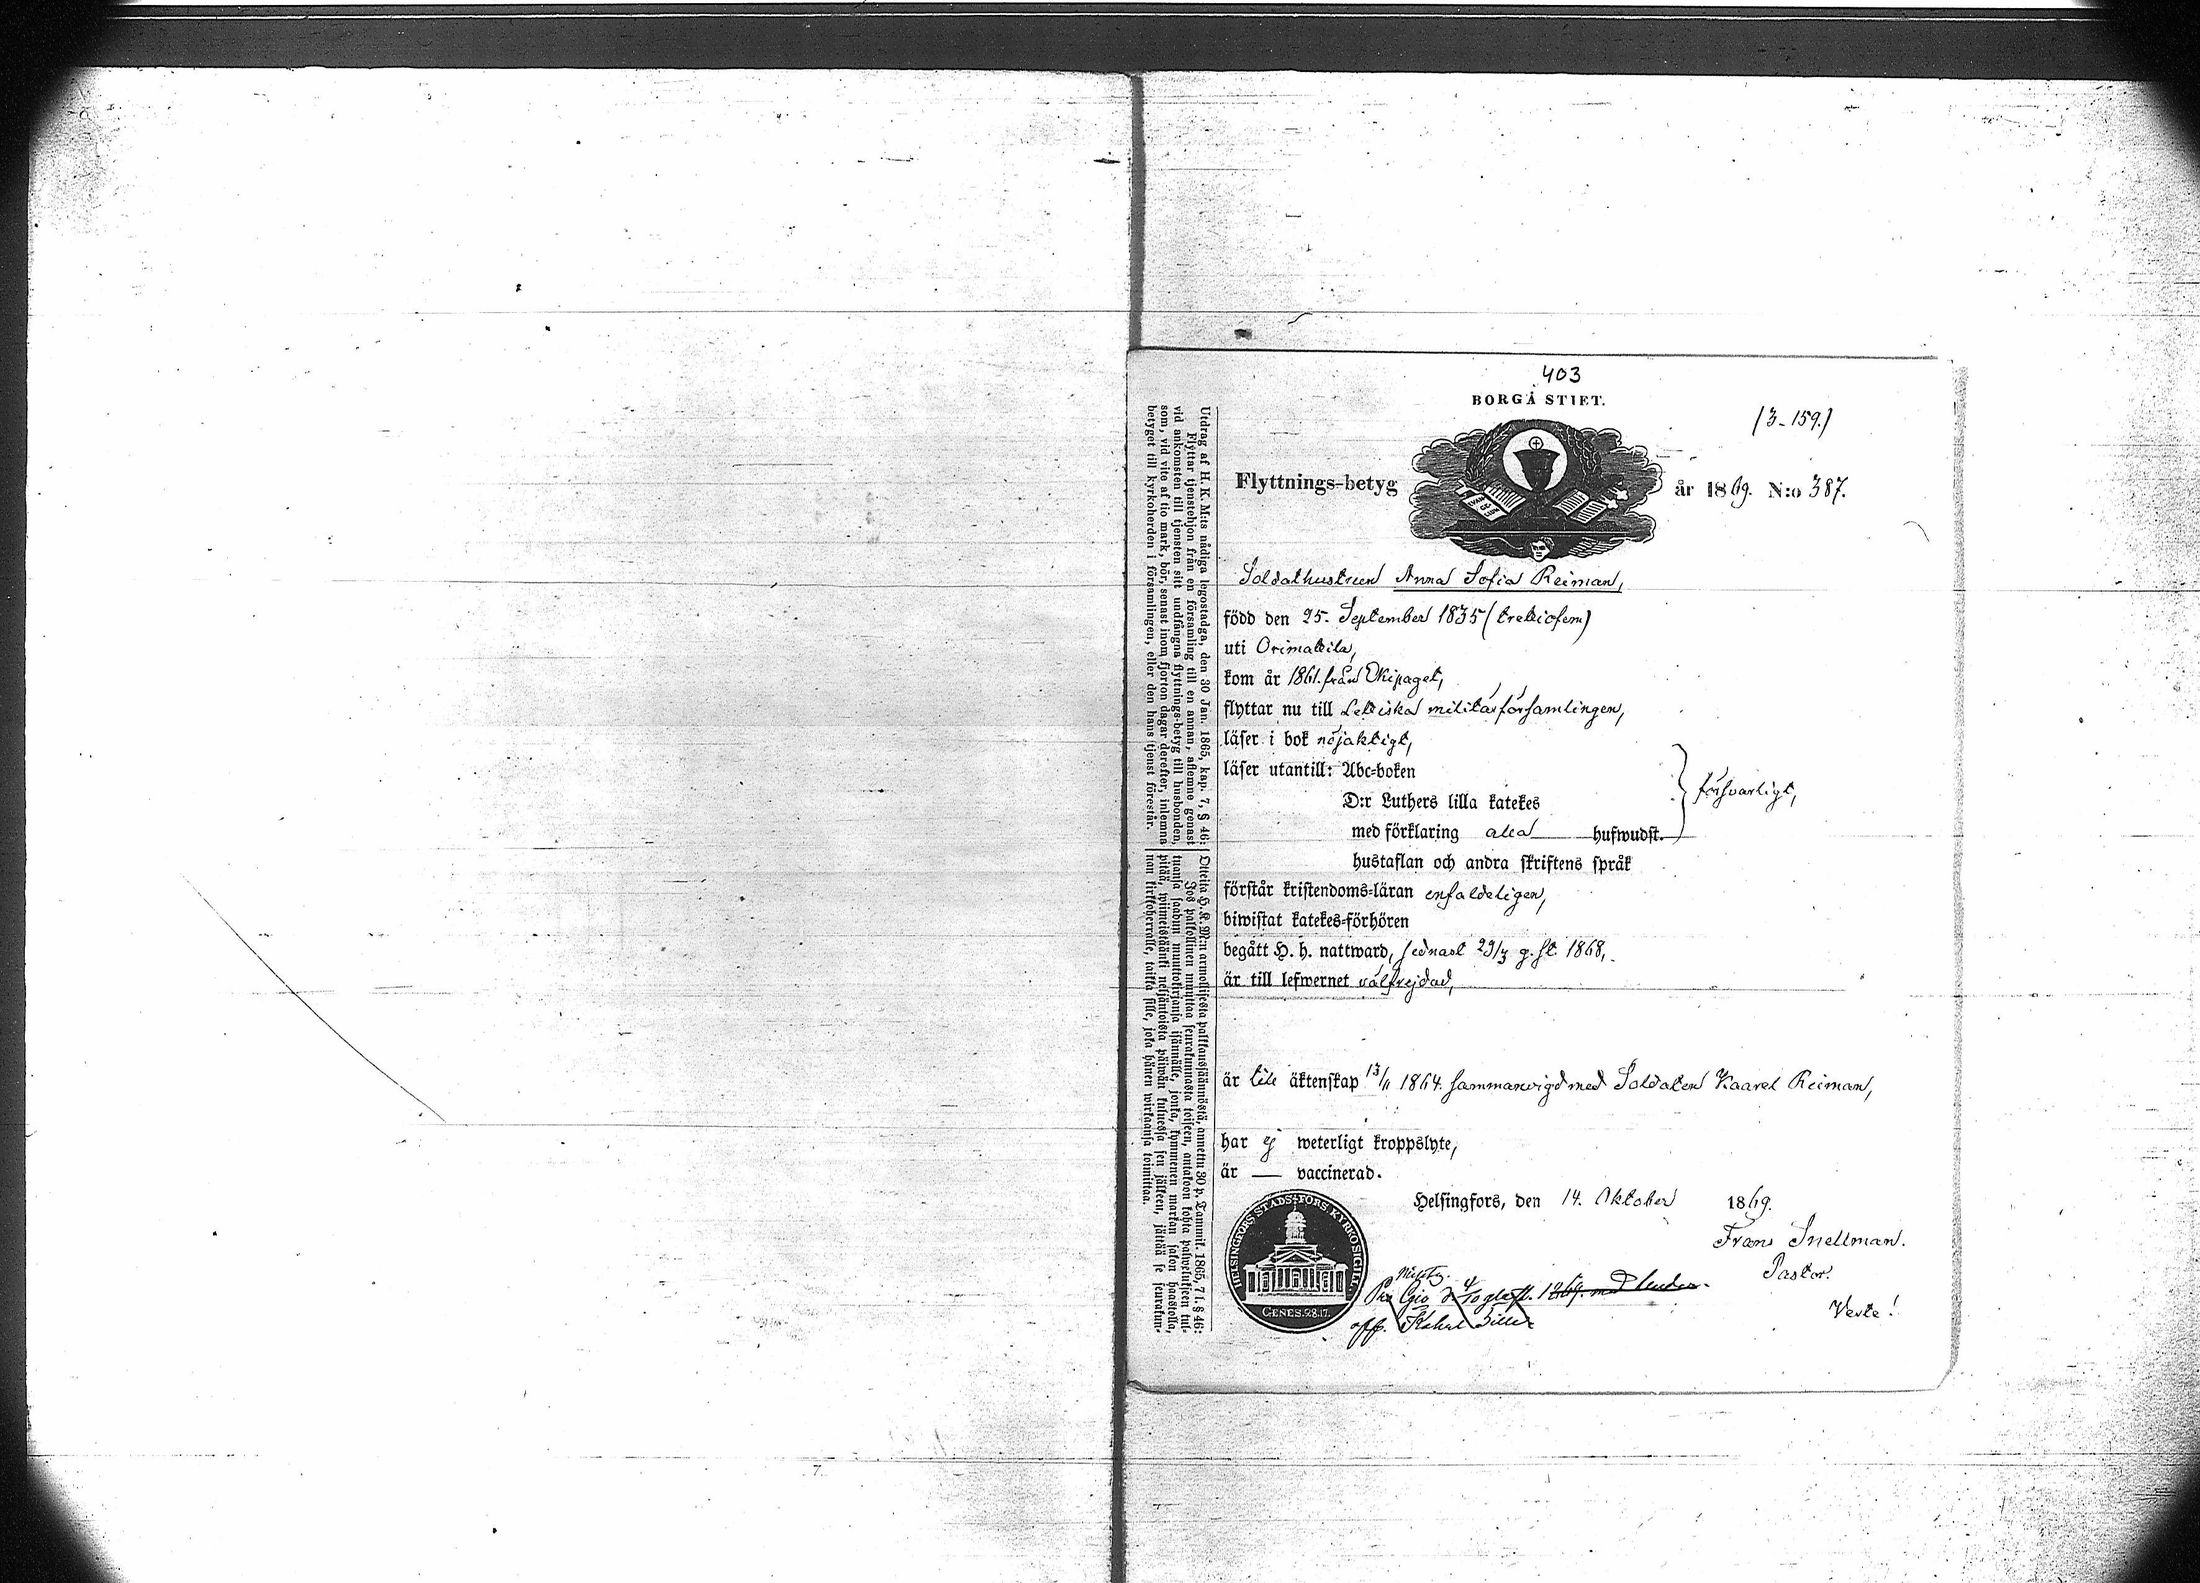 403
BORGÅ STIFT.
(3-159.)
Flyttnings-betyg
EVAN
GE
LIUM
år 1869. N:o 387.
Soldathustrun Anna Sofia Reiman,
född den 25. September 1835 (trettiofem)
uti Orimattila,
kom år 1861. från Ekipaget,
flyttar nu till Lettiska militärförsamlingen,
läser i bok nöjaktigt,
läser utantill: Abc-boken
D:r Luthers lilla katekes
med förklaring alla hufwudst.
försvarligt,
hustaflan och andra skriftens språk
förstår kristendoms-läran enfaldeligen,
biwistat katekes-förhören
begått H. h. nattward, sednast 29/3 g. st. 1868,
är till lefwernet välfrejdad,
är till äktenskap 13/11 1864. sammanvigd med Soldaten Kaarel Reiman,
har ej weterligt kroppslyte,
är — vaccinerad.
Helsingfors, den 14. Oktober 1869.
Frans Snellman.
Pastor.
Verte!
HELSINGFORS STADS-FÖRS. KYRKO SIGILL.
GENES. 28.17.
Utdrag af H. K. M:ts nådiga legostadga, den 30 Jan. 1865, kap. 7, § 46:
Flyttar tjenstehjon från en församling till en annan, aflemne genast
vid ankomsten till tjensten sitt undfångna flyttnings-betyg till husbonden,
som, vid vite af tio mark, bör, senast inom fjorton dagar derefter, inlemna
betyget till kyrkoherden i församlingen, eller den hans tjenst förestår.
Otteita H. K. M:n armollisesta palkkaussäännöstä, annettu 30 p. Tammik. 1865, 7 l. § 46:
Jos palkollinen muuttaa seurakunnasta toiseen, antakoon kohta palwelukseen tul-
tuansa saadun muuttokirjansa isännälle, jonka, kymmenen markan sakon haastolla,
pitää, wiimeistäänki neljäntoista päiwän kuluessa sen jälkeen, jättää se seurakun-
nan kirkkoherralle, taikka sille, joka hänen wirkaansa toimittaa.